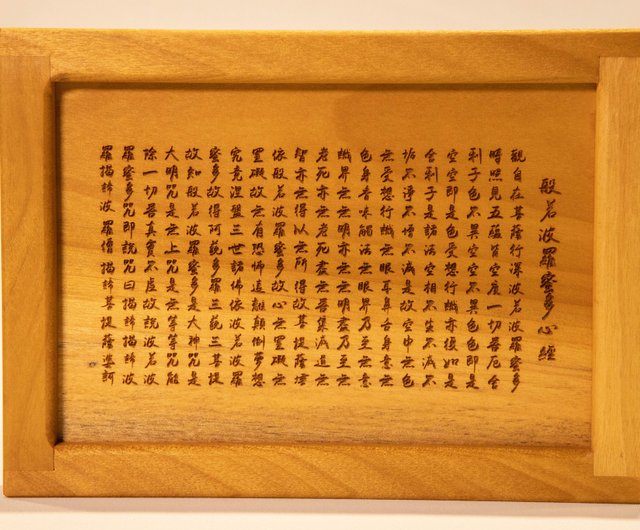 般若波羅蜜多心經
觀自在菩薩行深波若波羅蜜多
時照見五蘊皆空度一切苦厄舍
利子色不異空空不異色色即是
空空即是色受想行識亦復如是
舍利子是諸法空相不生不滅不
垢不淨不增不減是故空中無色
無受想行識無眼耳鼻舌身意無
色身香味觸法無眼界乃至無意
識界無無明亦無無明盡乃至無
老死亦無老死盡無苦集滅道無
智亦無得以無所得故菩提薩埵
依般若波羅蜜多故心無罣礙無
罣礙故無有恐怖遠離顛倒夢想
究竟涅盤三世諸佛依波若波羅
蜜多故得阿藐多羅三藐三菩提
故知般若波羅蜜多是大神咒是
大明咒是無上咒是無等等咒能
除一切苦真實不虛故說波若波
羅蜜多咒即說咒曰揭諦揭諦波
羅揭諦波羅僧揭諦菩提薩婆訶